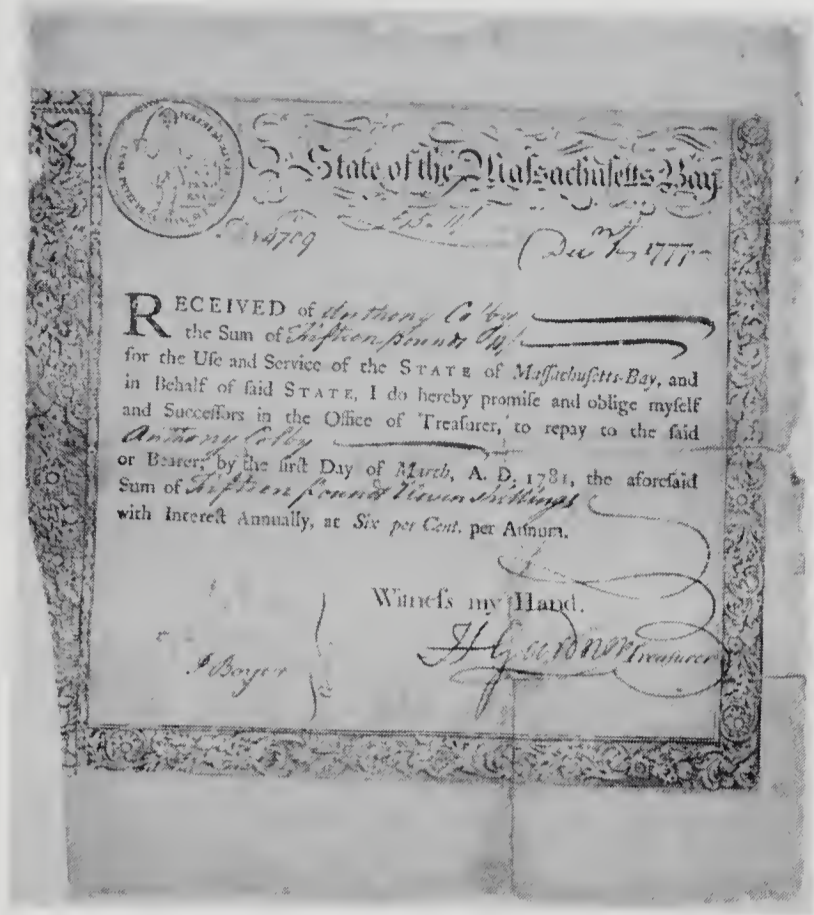 State of the Maſsachuſetts-Bay
4709
Decr 1777
RECEIVED of Anthony Colby
the Sum of Fifteen pounds 11/
for the Uſe and Service of the STATE of Maſſachuſetts-Bay, and
in Behalf of ſaid STATE, I do hereby promiſe and oblige myſelf
and Succeſſors in the Office of Treaſurer, to repay to the ſaid
Anthony Colby
or Bearer, by the firſt Day of March, A. D. 1781, the aforeſaid
Sum of Fifteen pounds Eleven shillings
with Intereſt Annually, at Six per Cent. per Annum.
Witneſs my Hand.
H Gardner Treaſurer
J Boyer